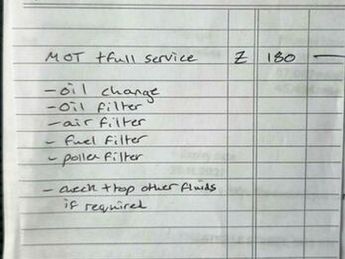 MOT + full service Z 180 —
- oil change
- oil filter
- air filter
- fuel filter
- pollen filter
- check + top other fluids
if required